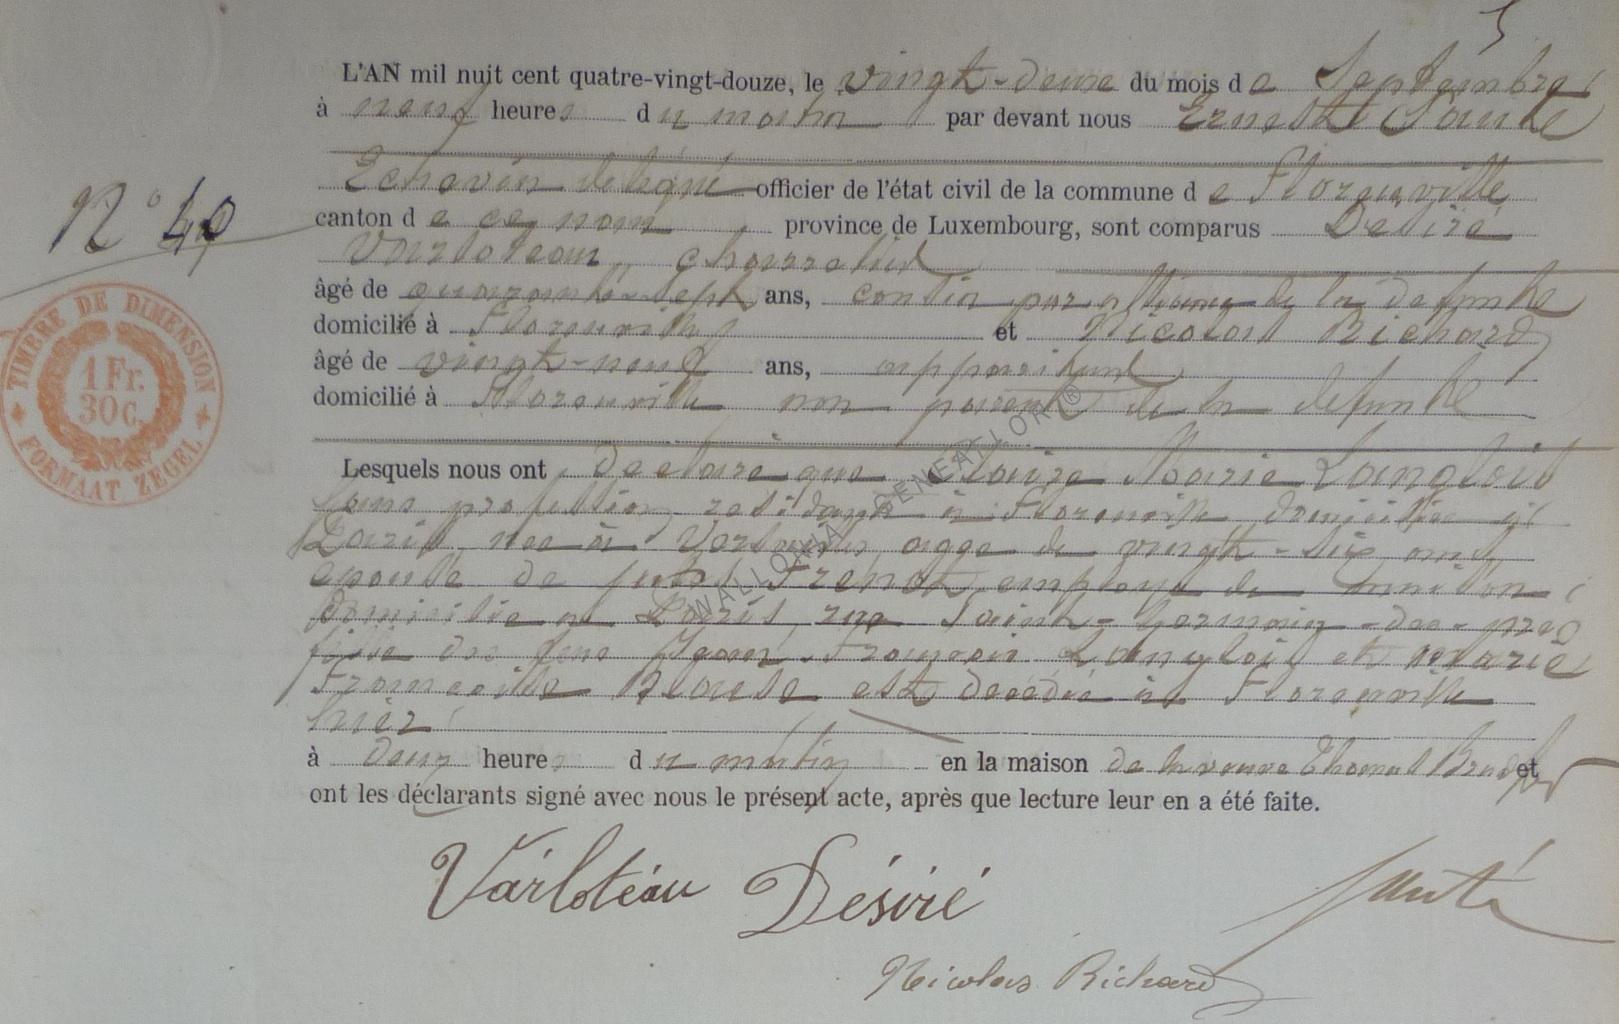 L'AN mil huit cent quatre-vingt-douze, le vingt-deux du mois de Septembre
à neuf heures du matin par devant nous Ernest Santé
Echevin délégué officier de l'état civil de la commune de Florenville
canton de ce nom province de Luxembourg, sont comparus Désiré
N° 40
Varloteau,
âgé de quarante-sept ans, cousin par alliance de la défunte
domicilié à Florenville et Nicolas Richard
âgé de vingt-neuf ans, appariteur
domicilié à Florenville non parent de la défunte
TIMBRE DE DIMENSION
1 Fr.
30 C.
FORMAAT ZEGEL
Lesquels nous ont déclaré que Marie Langlois
sans profession, résidant à Florenville domiciliée à
Paris, née à Versailles, agée de vingt-six ans
épouse de Jules employé de
domicilié à Paris, rue Saint-Germain-des-prés
fille de Jean François Langlois et Marie
Françoise est décédée à Florenville
hier
à deux heures du matin en la maison de la veuve Thomas et
ont les déclarants signé avec nous le présent acte, après que lecture leur en a été faite.
Varlotéau Désiré Santé
Nicolas Richard
WALLONIA GENEALOR ®